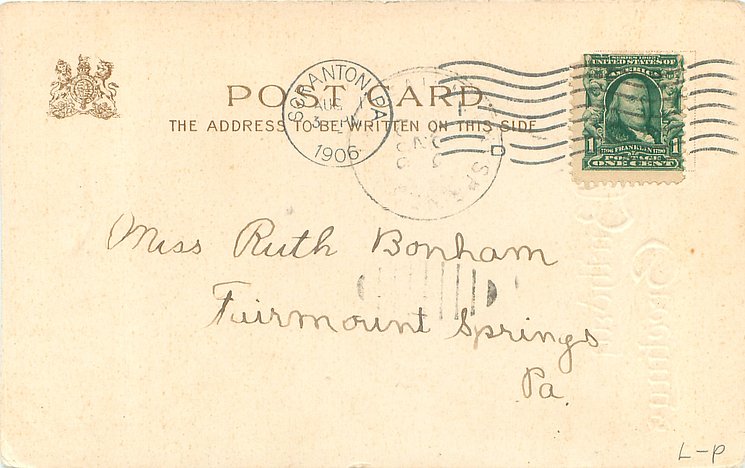 POST CARD
THE ADDRESS TO BE WRITTEN ON THIS SIDE
SCRANTON, PA
AUG 1
3 PM
1906
D
UNITED STATES OF
AMERICA
1 1706 FRANKLIN 1790 1
POSTAGE
ONE CENT
Miss Ruth Bonham
Fairmount Springs
Pa.
L-P